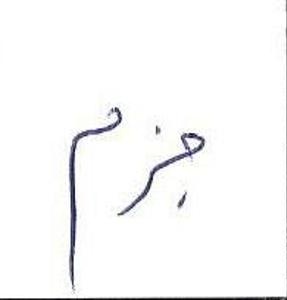 جزم